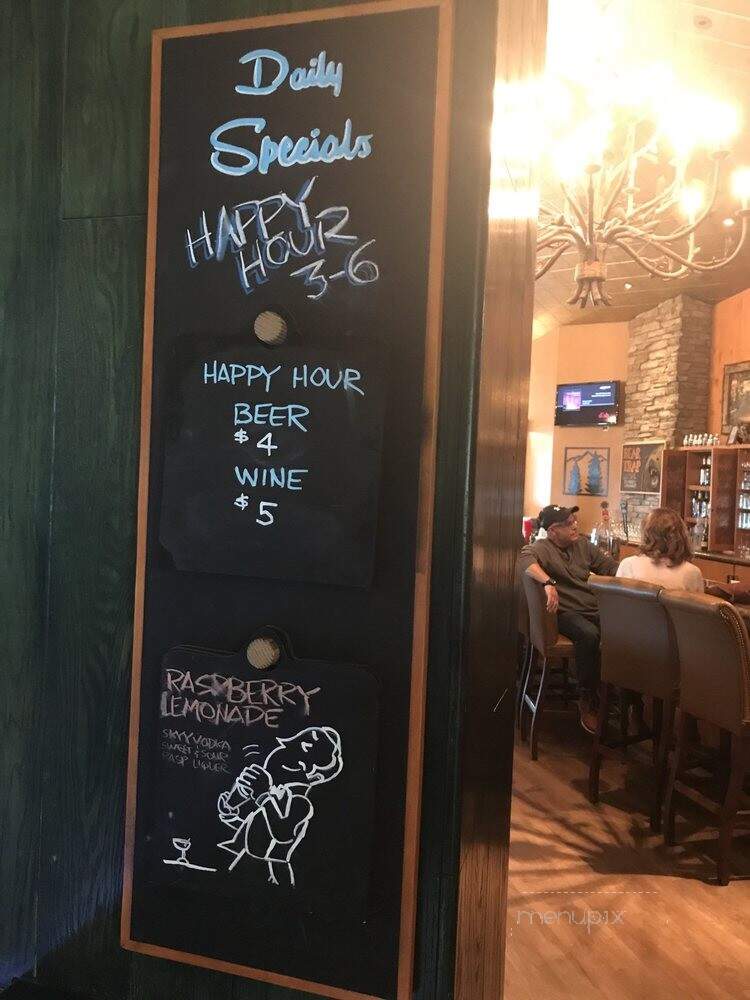 Daily
Specials
HAPPY
HOUR
3-6
HAPPY HOUR
BEER
$4
WINE
$5
RASPBERRY
LEMONADE
SKYY VODKA
SWEET & SOUR
RASP LIQUER
BEAR
TRAP
menupix